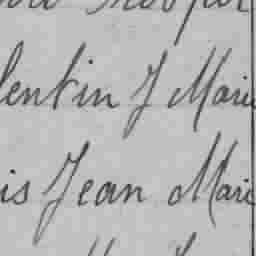 lentin J Marie
is Jean Marie